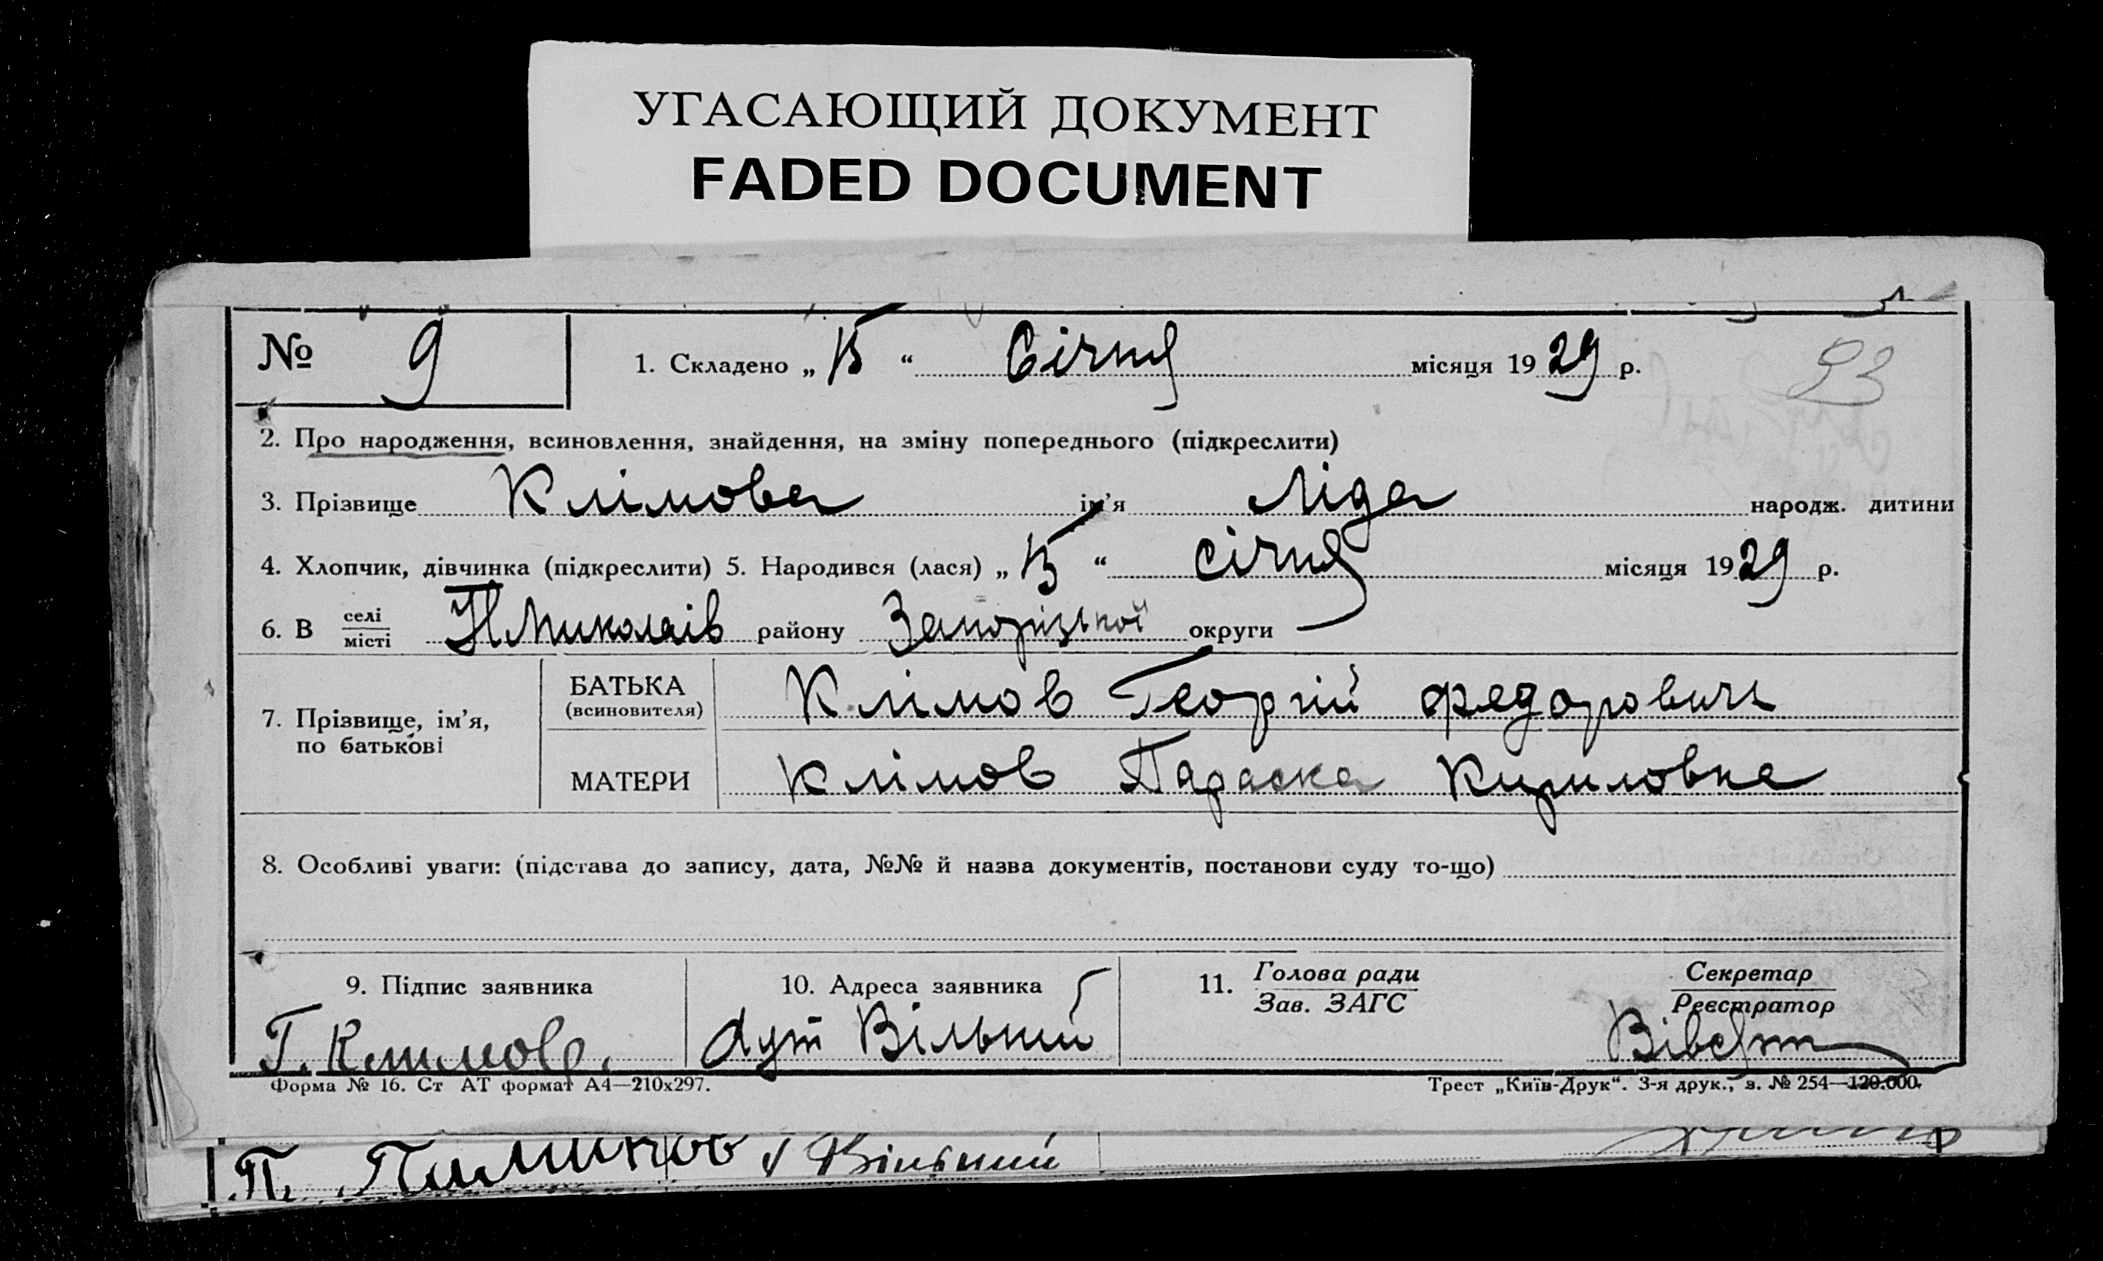 УГАСАЮЩИЙ ДОКУМЕНТ
FADED DOCUMENT
№ 9
1. Складено „15“ Січня місяця 1929 р.
53
2. Про народження, всиновлення, знайдення, на зміну попереднього (підкреслити)
3. Прізвище Клімова ім’я Ліда народж. дитини
4. Хлопчик, дівчинка (підкреслити) 5. Народився (лася) „15“ січня місяця 1929 р.
6. В селі місті Н Миколаїв району Запорізької округи
7. Прізвище, ім’я, по батькові
БАТЬКА (всиновителя) Клімов Георгій Федорович
МАТЕРИ Клімов Параска Кириловна
8. Особливі уваги: (підстава до запису, дата, №№ й назва документів, постанови суду то-що)
9. Підпис заявника
Г. Климов.
10. Адреса заявника
хут Вільний
11. Голова ради Зав. ЗАГС
Секретар Реєстратор
Форма № 16. Ст АТ формат А4—210х297.
Трест „Київ-Друк“. 3-я друк., з. № 254—120.000.
П. Вільний